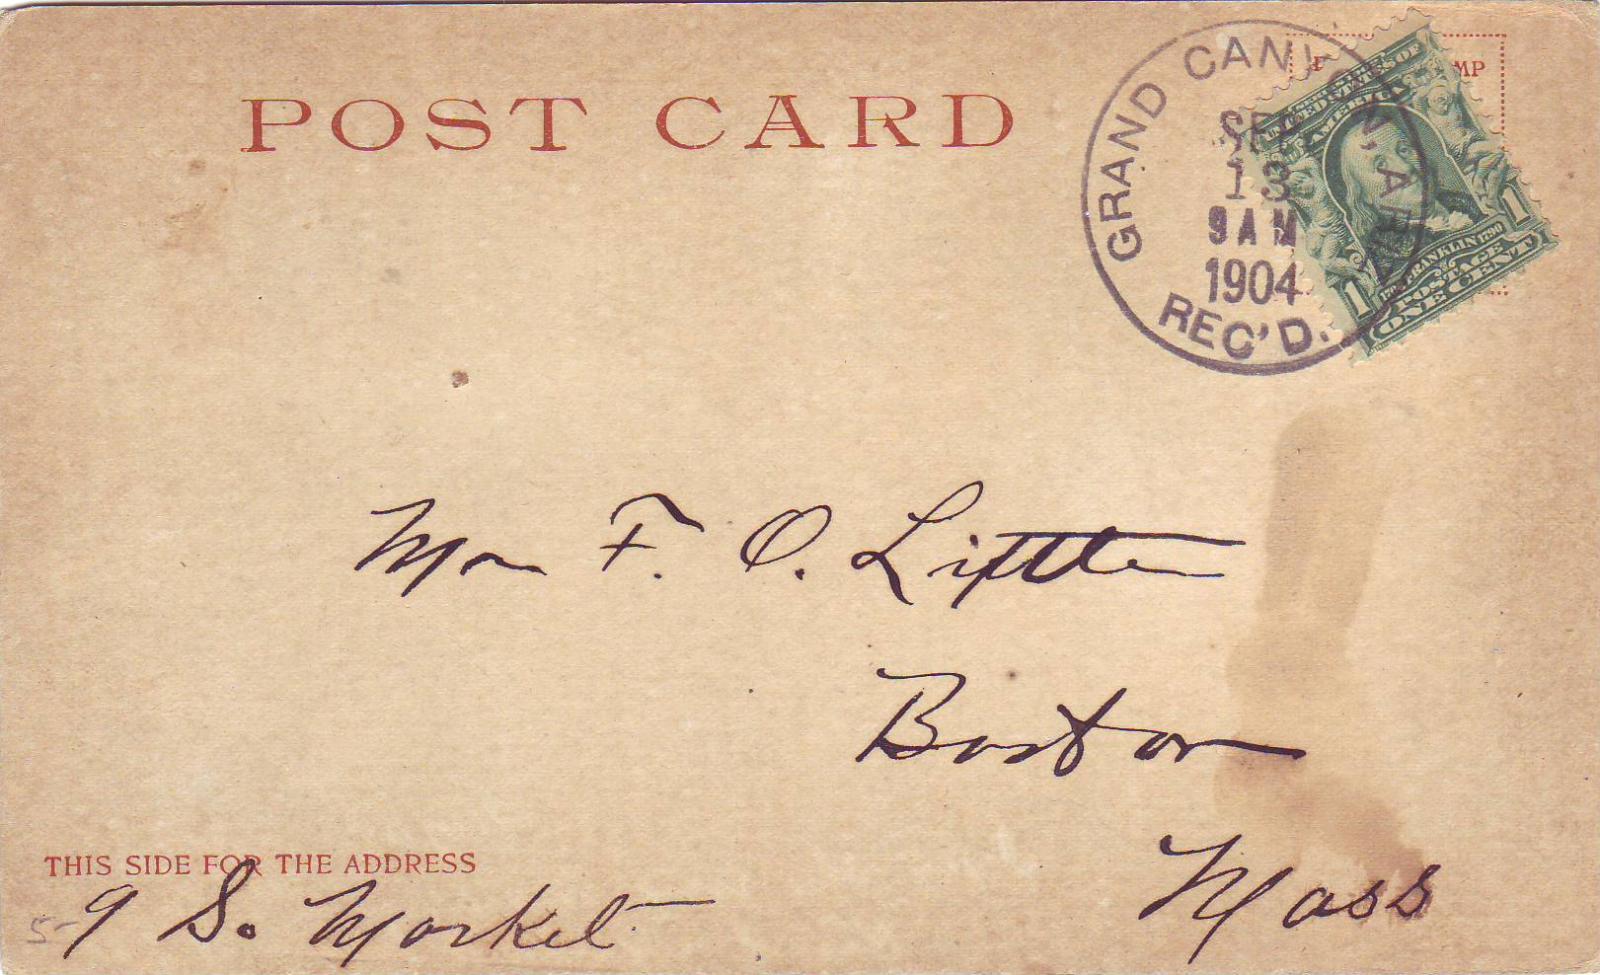 POST CARD
GRAND CANYON, ARIZ.
SEP
13
9 AM
1904
REC'D.
UNITED STATES OF
AMERICA
FRANKLIN 1790
POSTAGE
1 ONE CENT 1
Mr F. O. Little
Boston
Mass
THIS SIDE FOR THE ADDRESS
9 So. Market